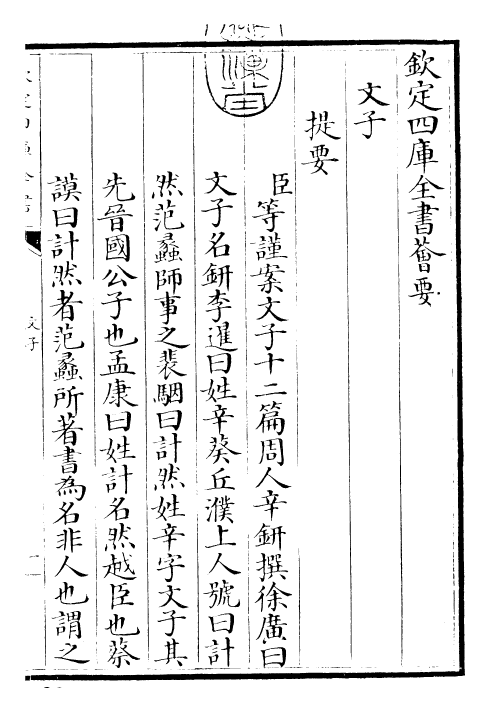 欽定四庫全書薈要
文子
提要
臣等謹案文子十二篇周人辛鈃撰徐廣曰
文子名鈃李暹曰姓辛葵丘濮上人號曰計
然范蠡師事之裴駰曰計然姓辛字文子其
先晉國公子也孟康曰姓計名然越臣也蔡
謨曰計然者范蠡所著書為名非人也謂之
文子
一